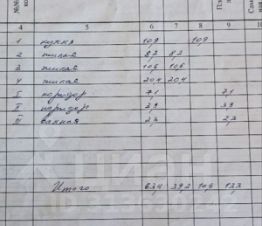 4 5 6 7 8 9 10
1 кухня 10,9 10,9
2 жилая 8,2 8,2
3 жилая 10,6 10,6
4 жилая 20,4 20,4
I коридор 7,1 7,1
II коридор 3,9 3,9
III ванная 2,3 2,3
Итого 63,4 39,2 10,9 13,3